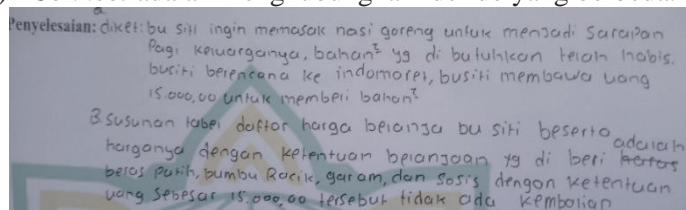 Penyelesaian: diket: bu siti ingin memasak nasi goreng untuk menjadi sarapan
Pagi keluarganya, bahan² yg di butuhkan telah habis.
busiti berencana ke indomaret, busiti membawa uang
15.000,00 untuk memberi bahan²
B. susunan tabel daftar harga belanja bu siti beserta adalah
harganya dengan ketentuan belanjaan yg di beri
beras putih, bumbu Racik, garam, dan sosis dengan ketentuan
uang sebesar 15.000,00 tersebut tidak ada kembalian